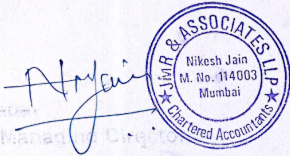 JMR & ASSOCIATES LLP
Nikesh Jain
M. No. 114003
Mumbai
★ Chartered Accountants ★
Managing Director